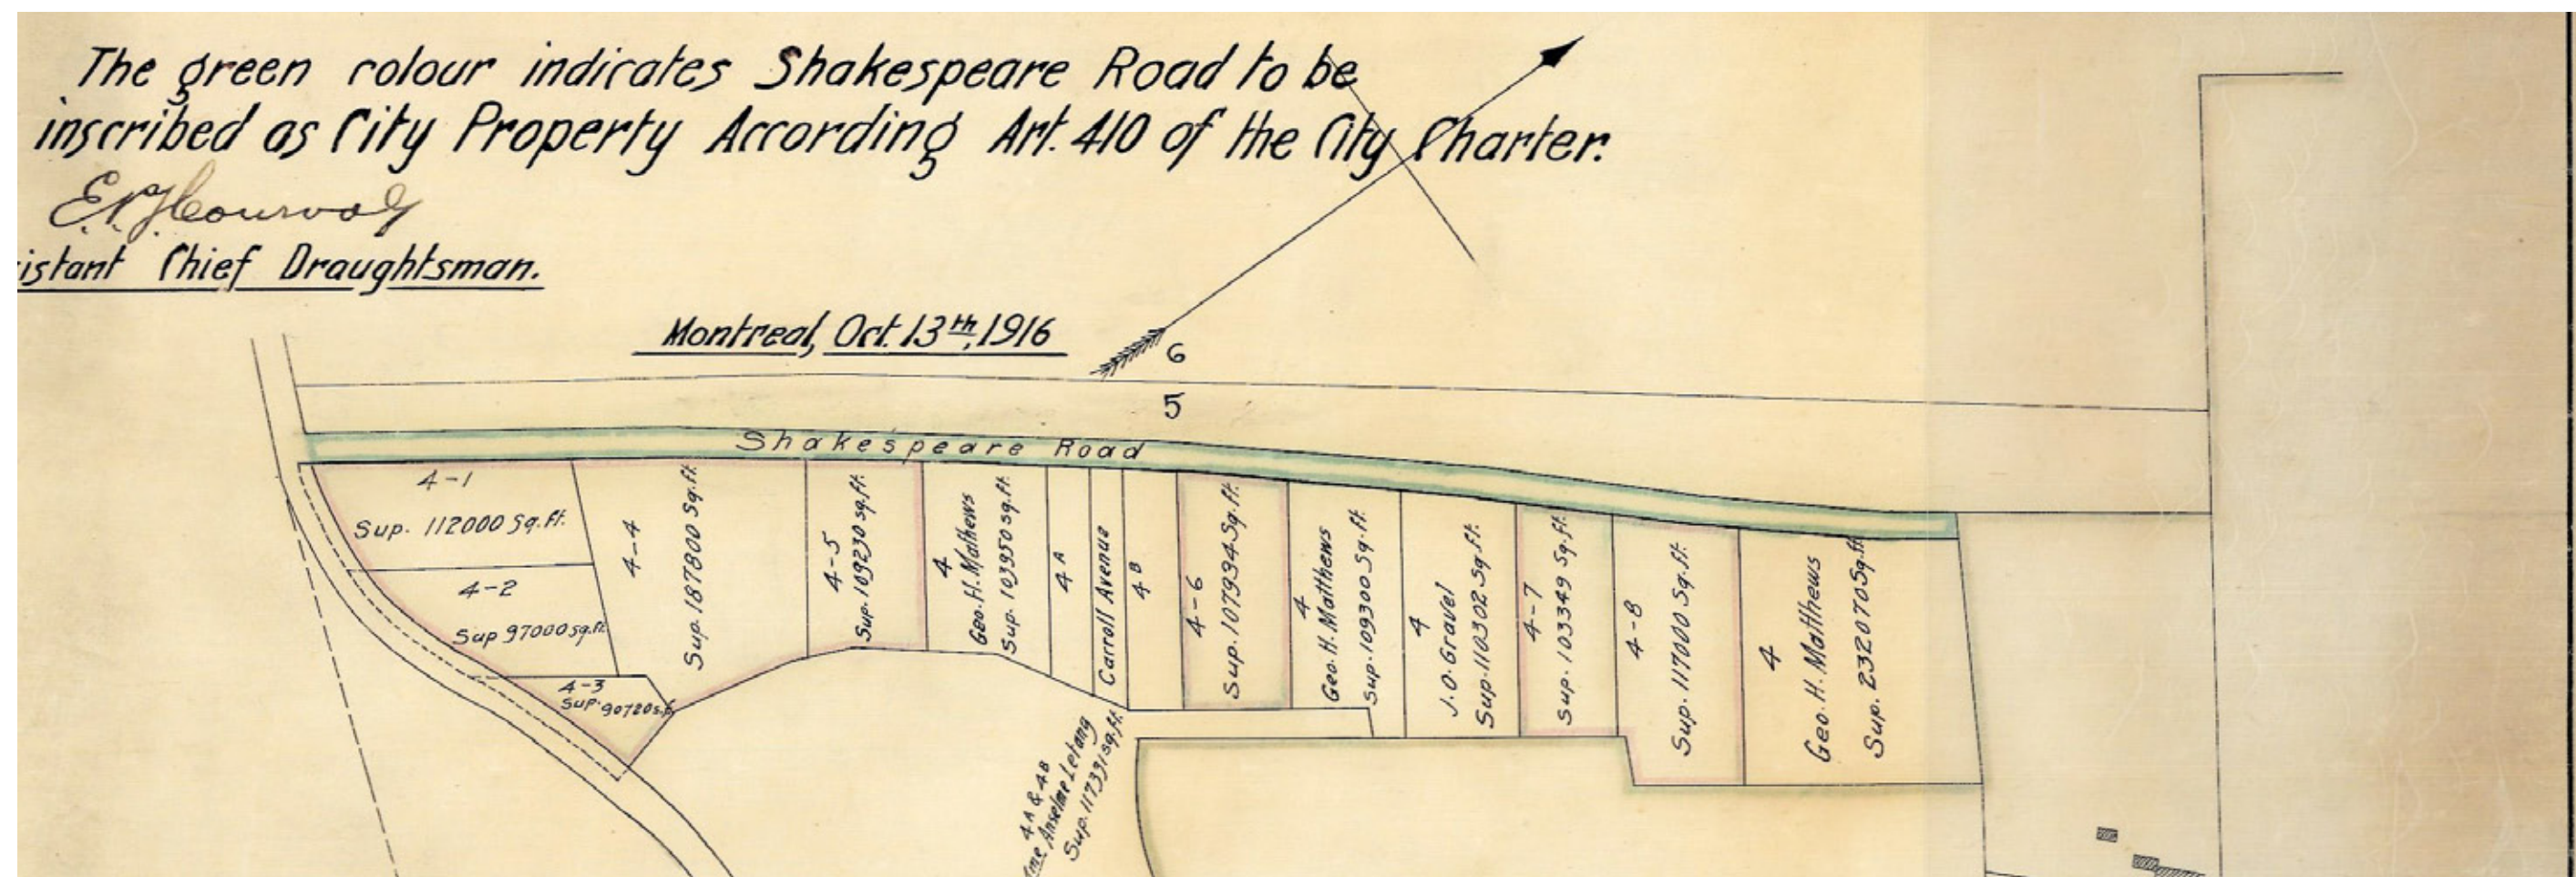 The green colour indicates Shakespeare Road to be
inscribed as City Property According Art. 410 of the City Charter.
istant Chief Draughtsman.
Montreal, Oct. 13th, 1916
6
5
Shakespeare Road
4-1
Sup. 112000 Sq.ft.
4-2
Sup 97000 sq.ft.
4-3
Sup.
4-4
Sup. 187800 Sq.ft.
4-5
Sup. 109230 sq.ft.
4
Geo. H. Mathews
Sup. 103950 sq.ft.
4A
Carroll Avenue
4B
4-6
Sup. 107934 Sq.ft.
4
Geo. H. Matthews
Sup. 109300 Sq.ft.
4
J.O. Gravel
Sup. 110302 Sq.ft.
4-7
Sup. 103349 Sq.ft.
4-8
Sup. 117000 Sq.ft.
4
Geo. H. Matthews
Sup. 232070 Sq.ft.
4A & 4B
Anselme Letang
Sup. 117391 sq.ft.